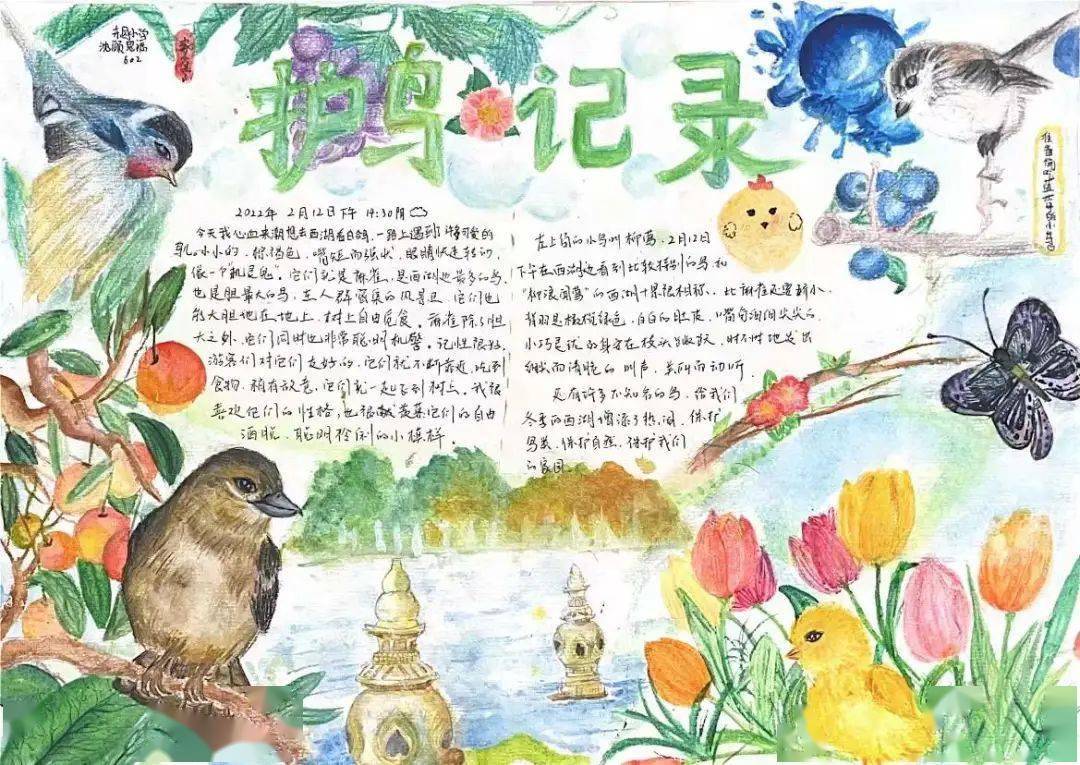 护鸟记录
602
2022年2月12日下午14:30阴
今天我心血来潮想去西湖看白鸽,一路上遇到许多可爱的
小小的,棕褐色,嘴短而强状,眼睛快速转动,
像一个“机灵鬼”。它们就是麻雀,是西湖边最多的鸟,
也是胆最大的鸟,在人群密集的风景区,它们也
能大胆地在地上、树上自由觅食。麻雀除了胆
大之外,它们同时也非常聪明机警。记性很好,
游客们对它们友好的,它们就不断靠近,吃到
食物,稍有敌意,它们就一起飞到树上。我很
喜欢他们的性格,也很羡慕它们的自由
洒脱、聪明伶俐的小模样。
左上角的小鸟叫柳莺。2月12日
下午在西湖边看到比较特别的鸟,和
“柳浪闻莺”的西湖十景很相称、比麻雀还要小,
背羽是橄榄绿色,白白的肚皮,嘴
小巧灵活的身穿在枝头跳跃,时不时地发出
细而清脆的叫声,美丽而动听。
还有许多不知名的鸟,给我们
冬季的西湖增添了热闹,保护
鸟类、保护自然、保护我们
的家园。